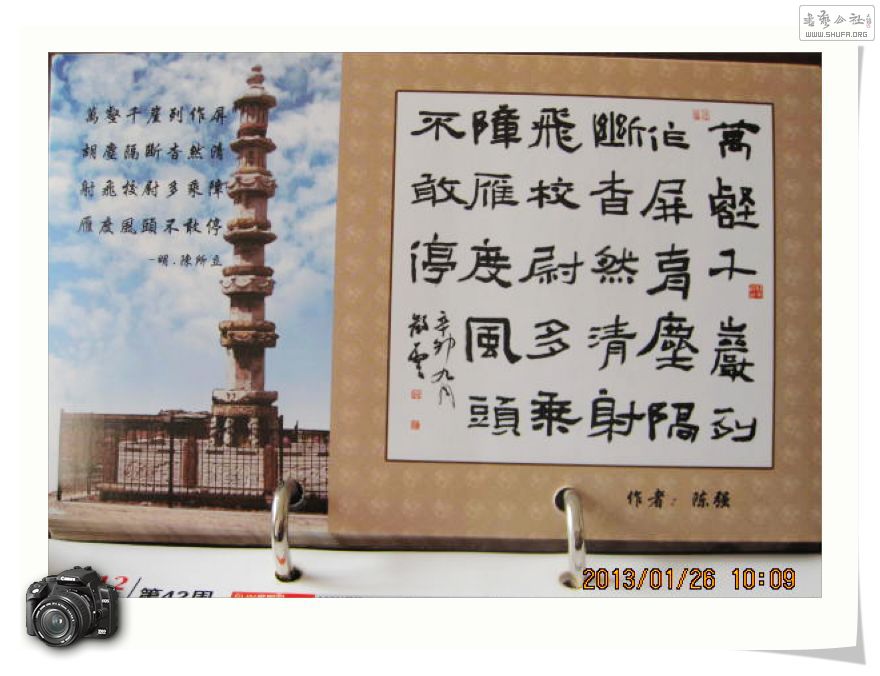 书艺公社
WWW.SHUFA.ORG
萬壑千崖列作屏
胡塵隔斷杳然清
射飛校尉多乘障
雁度風頭不敢停
-明.陳所立
萬壑千巖列
作屏胡塵隔
斷杳然清射
飛校尉多乘
障雁度風頭
不敢停
辛卯九月
作者：陈强
12/第42周
2013/01/26 10:09
Canon